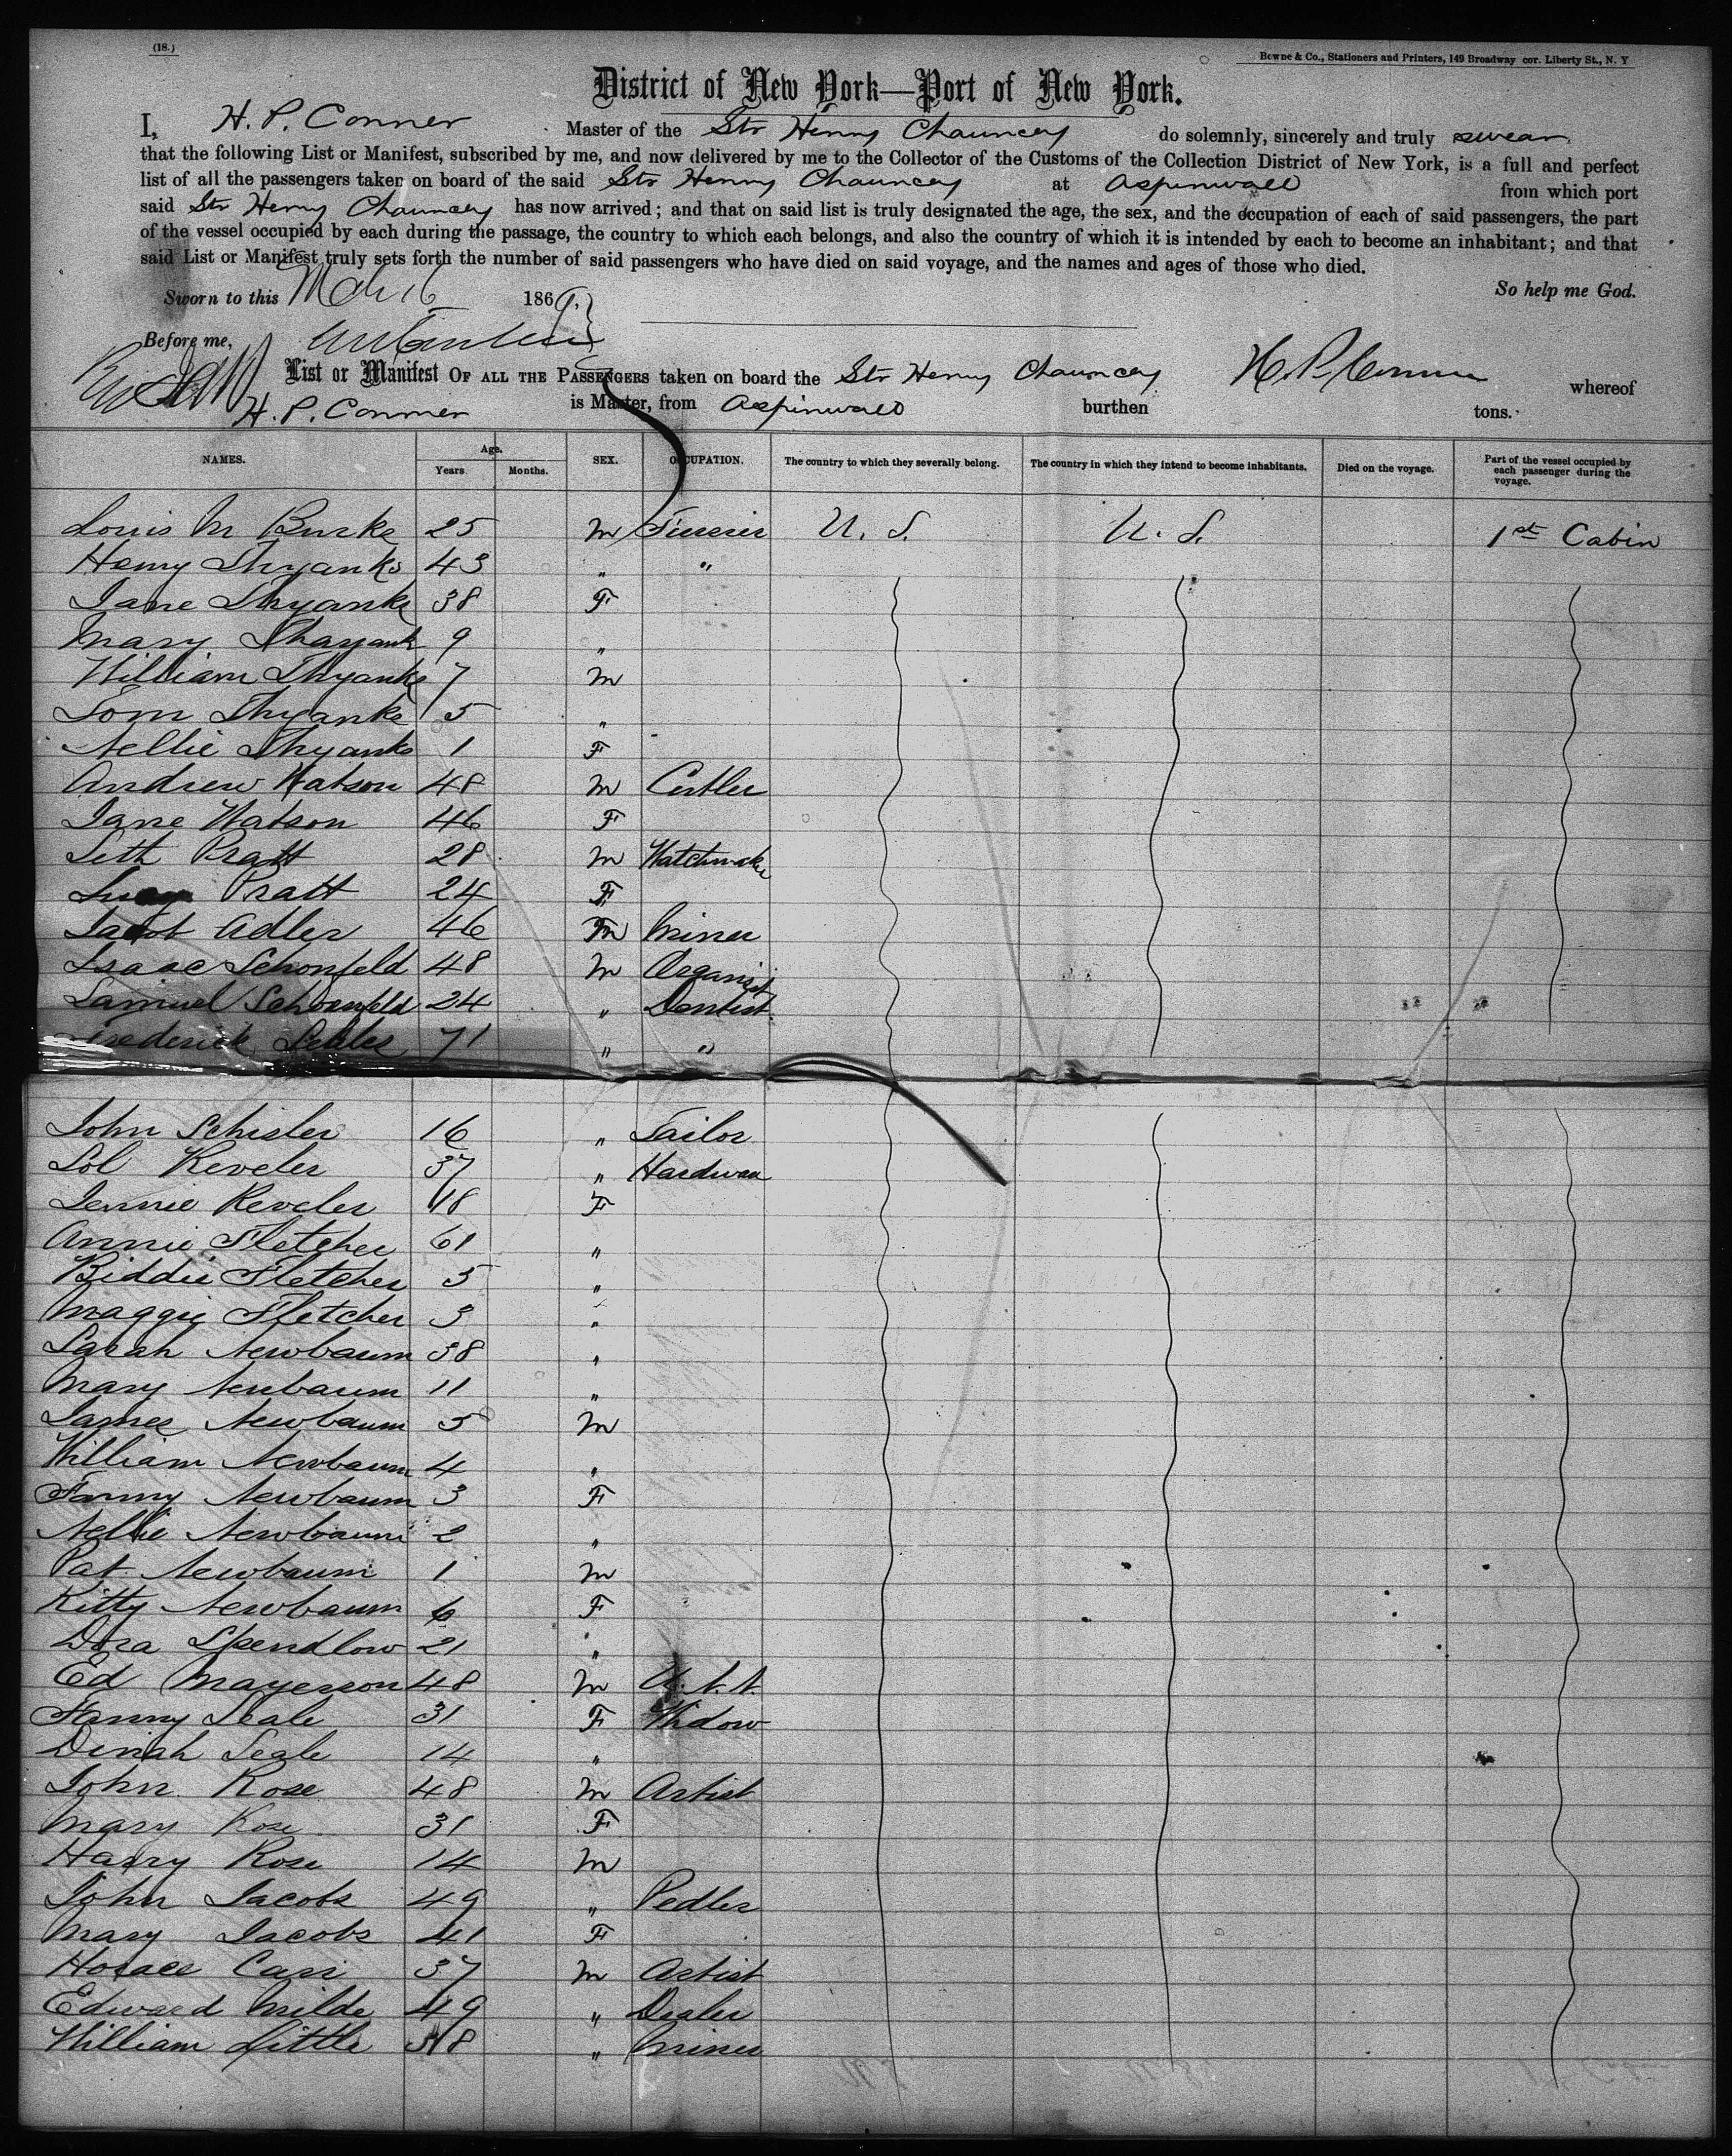 (18.)
Bowne & Co., Stationers and Printers, 149 Broadway cor. Liberty St., N. Y
District of New York—Port of New York.
I, H. P. Conner Master of the Str Henry Chauncey do solemnly, sincerely and truly swear
that the following List or Manifest, subscribed by me, and now delivered by me to the Collector of the Customs of the Collection District of New York, is a full and perfect
list of all the passengers taken on board of the said Str Henry Chauncey at Aspinwall from which port
said Str Henry Chauncey has now arrived; and that on said list is truly designated the age, the sex, and the occupation of each of said passengers, the part
of the vessel occupied by each during the passage, the country to which each belongs, and also the country of which it is intended by each to become an inhabitant; and that
said List or Manifest truly sets forth the number of said passengers who have died on said voyage, and the names and ages of those who died.
So help me God.
Sworn to this Mch 16 1869.
Before me,
List or Manifest OF ALL THE PASSENGERS taken on board the Str Henry Chauncey H. P. Conner whereof
H. P. Conner is Master, from Aspinwall burthen tons.
NAMES. Age. Years Months. SEX. OCCUPATION. The country to which they severally belong. The country in which they intend to become inhabitants. Died on the voyage. Part of the vessel occupied by each passenger during the voyage.
Louis M Burke 25 M U. S. U. S. 1st Cabin
Henry Thyanks 43 " "
Jane Thyanks 38 F
Mary Thayank 9 "
William Thyanks 7 M
Tom Thyanks 5 "
Nellie Thyanks 1 F
Andrew Watson 48 M Cutler
Jane Watson 46 F
Seth Pratt 28 M Watchmaker
Lucy Pratt 24 F
Jacob Adler 46 M Miner
Isaac Schonfeld 48 M Organist
Samuel Schoenfeld 24 " Dentist
Frederick 71 " "
John Schisler 16 " Tailor
Sol Reveler 37 " Hardware
Jennie Reveler 18 F
Annie Fletcher 61 "
Biddie Fletcher 5 "
Maggie Fletcher 3 "
Sarah Newbaum 38 "
Mary Newbaum 11 "
James Newbaum 5 M
William Newbaum 4 "
Fanny Newbaum 3 F
Nellie Newbaum 2 "
Pat Newbaum 1 M
Kitty Newbaum 6 F
Dora Spendlow 21 "
Ed Mayerson 48 M U. S. N.
Fanny Seale 31 F Widow
Dinah Seale 14 "
John Rose 48 M Artist
Mary Rose 31 F
Harry Rose 14 M
John Jacobs 49 " Pedler
Mary Jacobs 41 F
Horace Carr 37 M Artist
Edward Milde 49 " Dealer
William Little 38 " Miner